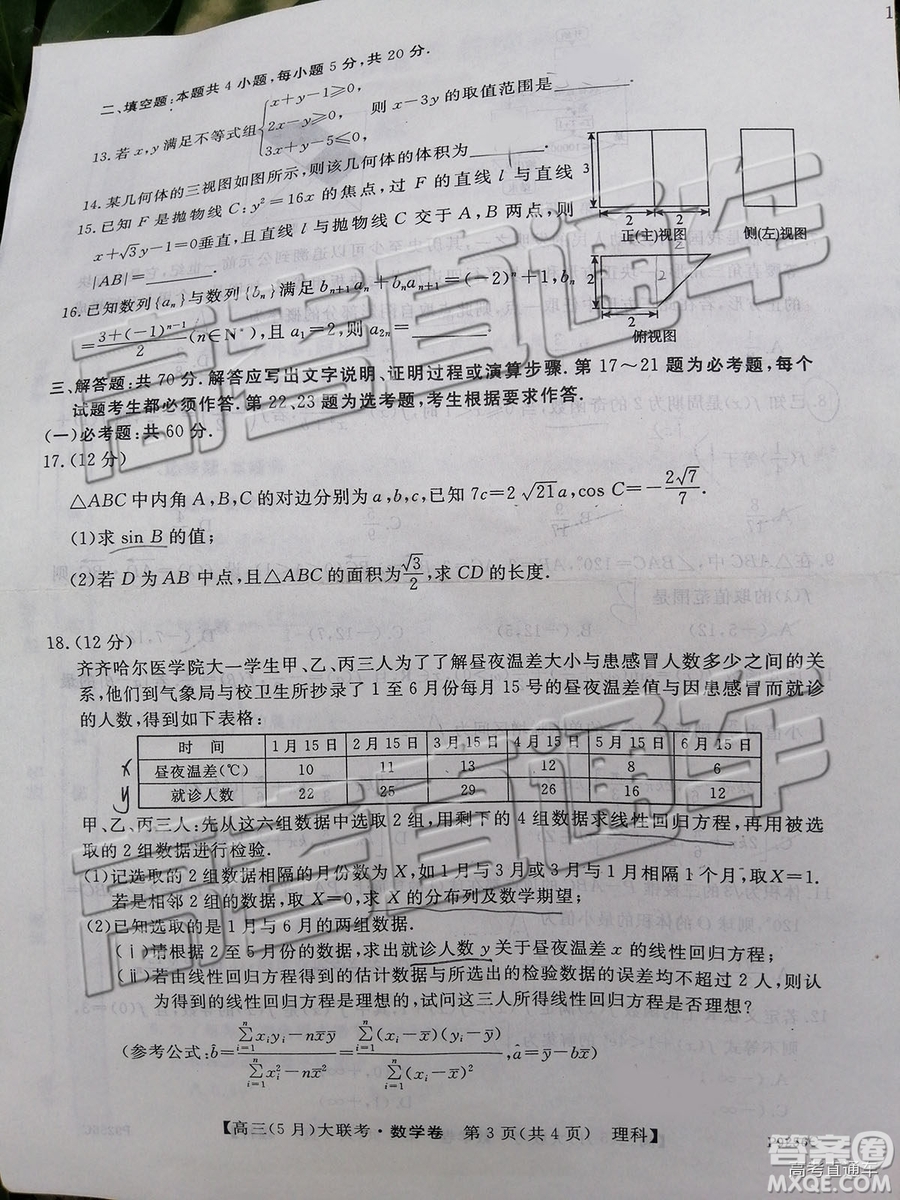 1
二、填空题:本题共4小题,每小题5分,共20分.
13.若x,y满足不等式组{x+y-1≥0, 2x-y≥0, 3x+y-5≤0, 则x-3y的取值范围是________.
14.某几何体的三视图如图所示,则该几何体的体积为________.
3
2 2
正(主)视图 侧(左)视图
2
2
2
2
俯视图
15.已知F是抛物线C:y²=16x的焦点,过F的直线l与直线
x+√3y-1=0垂直,且直线l与抛物线C交于A,B两点,则
|AB|=________.
16.已知数列{aₙ}与数列{bₙ}满足bₙ₊₁aₙ+bₙaₙ₊₁=(-2)ⁿ+1,bₙ
=(3+(-1)ⁿ⁻¹)/2(n∈N*),且a₁=2,则a₂ₙ=________.
三、解答题:共70分.解答应写出文字说明、证明过程或演算步骤.第17~21题为必考题,每个
试题考生都必须作答.第22、23题为选考题,考生根据要求作答.
(一)必考题:共60分.
17.(12分)
△ABC中内角A,B,C的对边分别为a,b,c,已知7c=2√21a,cos C=-2√7/7.
(1)求sin B的值;
(2)若D为AB中点,且△ABC的面积为√3/2,求CD的长度.
18.(12分)
齐齐哈尔医学院大一学生甲、乙、丙三人为了了解昼夜温差大小与患感冒人数多少之间的关
系,他们到气象局与校卫生所抄录了1至6月份每月15号的昼夜温差值与因患感冒而就诊
的人数,得到如下表格:
时 间 1月15日 2月15日 3月15日 4月15日 5月15日 6月15日
x 昼夜温差(℃) 10 11 13 12 8 6
y 就诊人数 22 25 29 26 16 12
甲、乙、丙三人:先从这六组数据中选取2组,用剩下的4组数据求线性回归方程,再用被选
取的2组数据进行检验.
(1)记选取的2组数据相隔的月份数为X,如1月与3月或3月与1月相隔1个月,取X=1.
若是相邻2组的数据,取X=0,求X的分布列及数学期望;
(2)已知选取的是1月与6月的两组数据.
(ⅰ)请根据2至5月份的数据,求出就诊人数y关于昼夜温差x的线性回归方程;
(ⅱ)若由线性回归方程得到的估计数据与所选出的检验数据的误差均不超过2人,则认
为得到的线性回归方程是理想的,试问这三人所得线性回归方程是否理想?
(参考公式:b̂=(∑ᵢ₌₁ⁿxᵢyᵢ-nx̄ȳ)/(∑ᵢ₌₁ⁿxᵢ²-nx̄²)=(∑ᵢ₌₁ⁿ(xᵢ-x̄)(yᵢ-ȳ))/(∑ᵢ₌₁ⁿ(xᵢ-x̄)²),â=ȳ-b̂x̄)
【高三(5月)大联考·数学卷 第3页(共4页) 理科】
高考直通车
高考直通车
答案圈
高考直通车
MXQE.COM